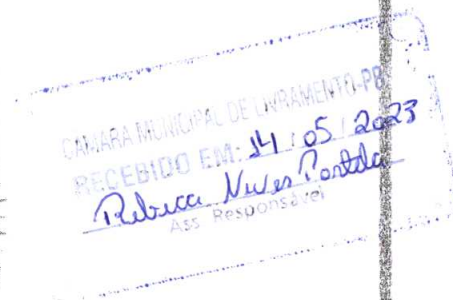 CAMARA MUNICIPAL DE LIVRAMENTO-PB
RECEBIDO EM: 14 / 05 / 2023
Rebecca Neves
Ass Responsável